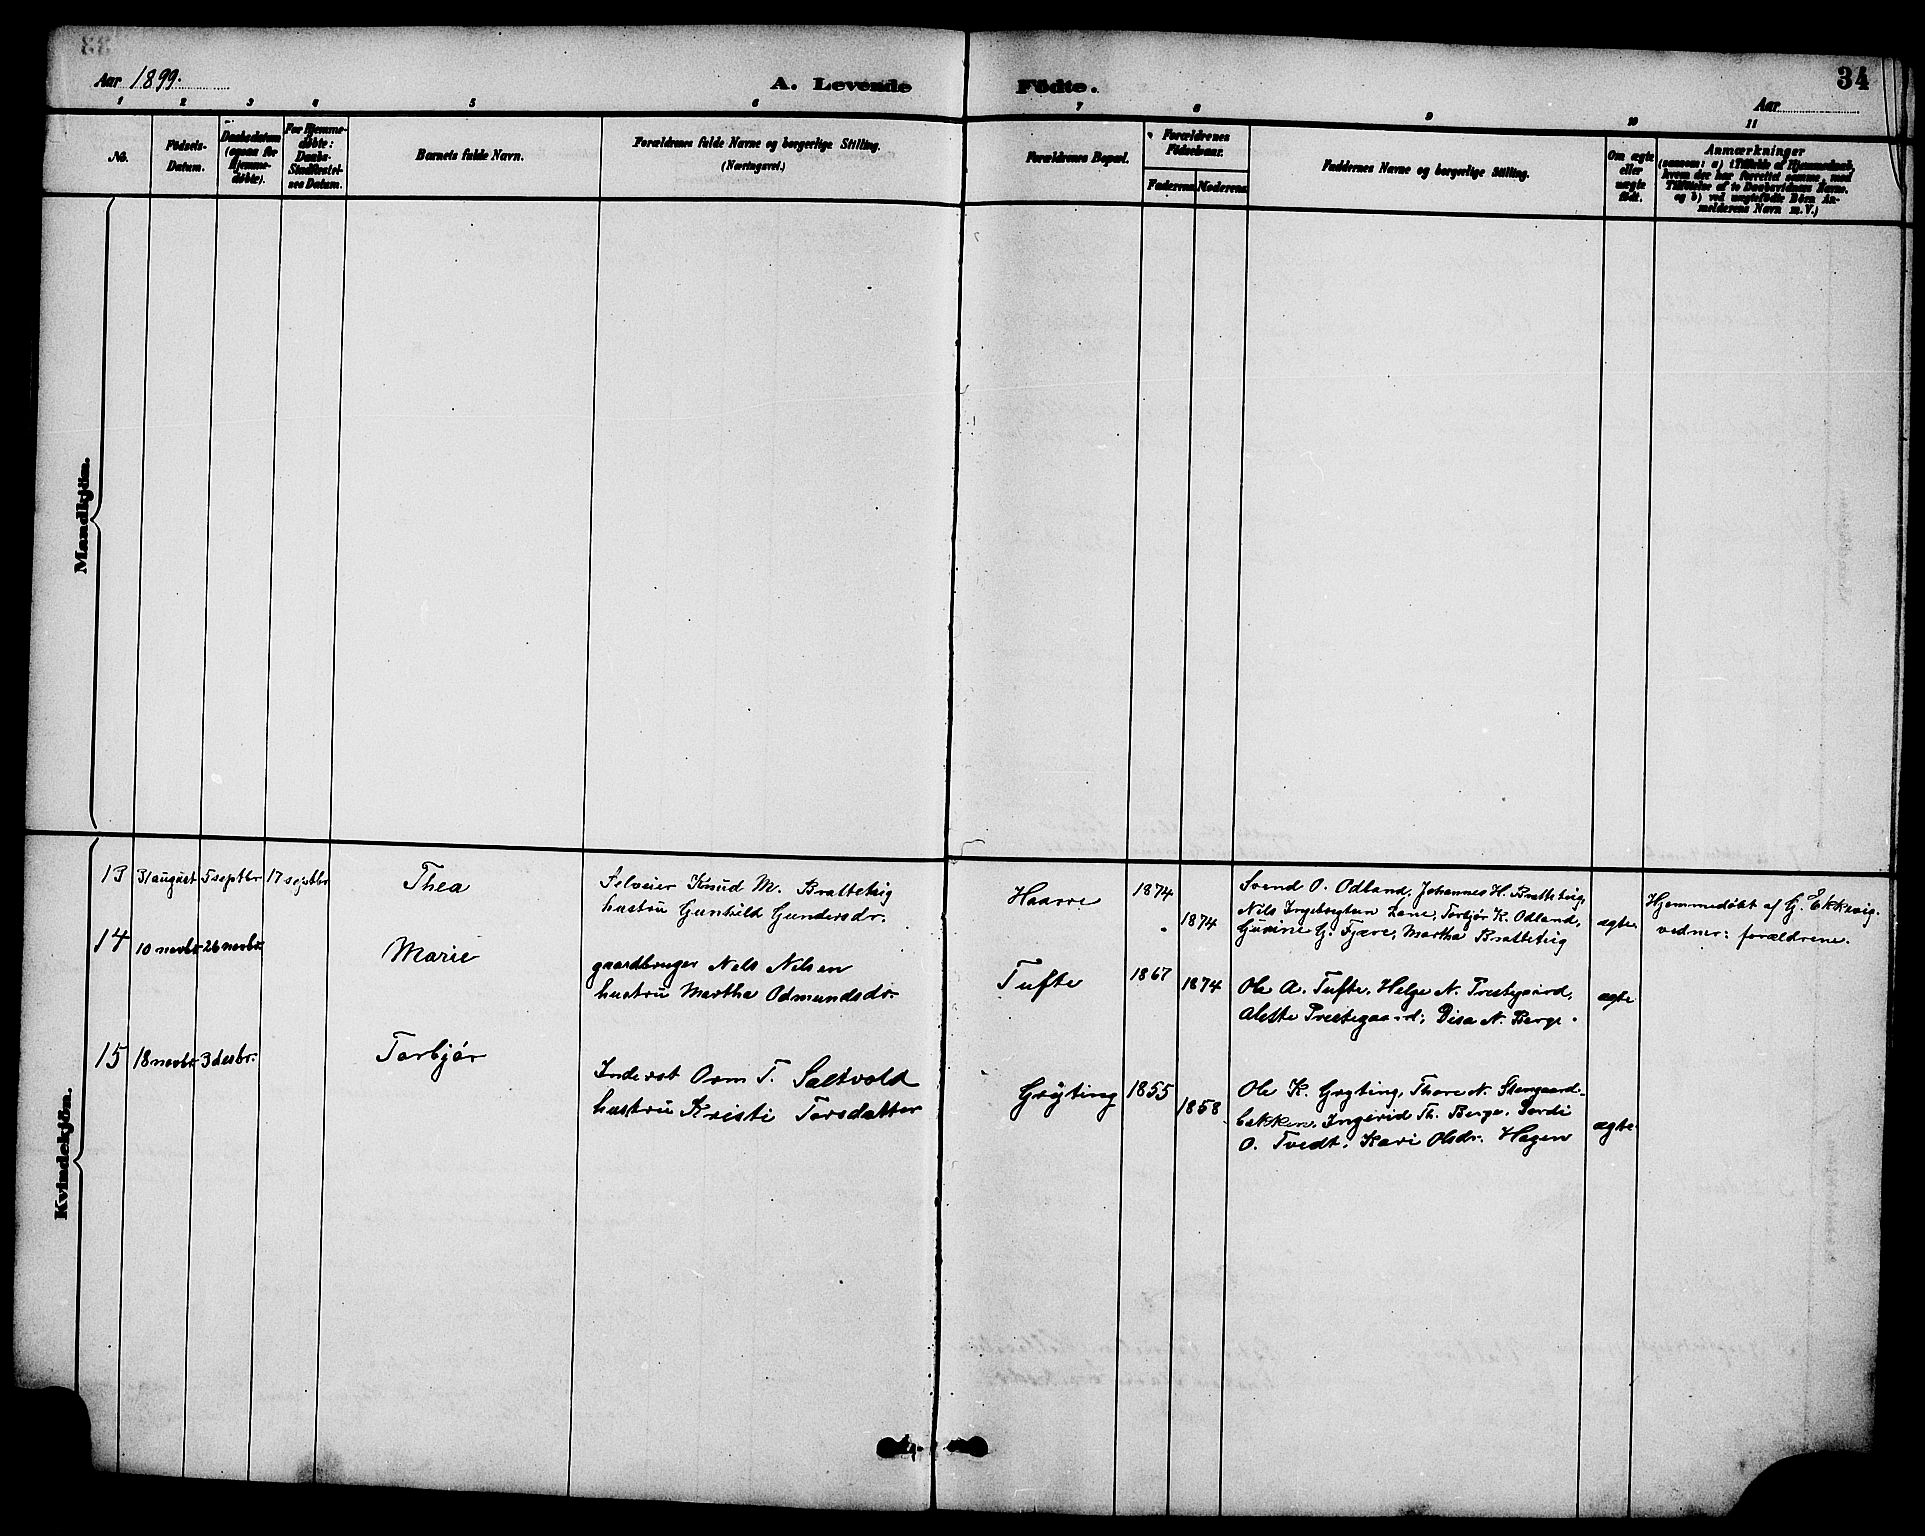 Aar 1899.
A. Levende
Födte.
34
Aar
1 2 3 4 5 6 7 8 9 10 11
No.
Födsels-
Datum.
Daabsdatum
(ogsaa for
Hjemme-
döbte).
For Hjemme-
döbte:
Daabs-
Stadfæstel-
ses Datum.
Barnets fulde Navn.
Forældrenes fulde Navne og borgerlige Stilling.
(Næringsvei.)
Forældrenes Bopæl.
Forældrenes
Födselsaar.
Faderens Moderens
Faddernes Navne og borgerlige Stilling.
Om ægte
eller
uægte
födt.
Anmærkninger
(saasom: a) i Tilfælde af Hjemmedaab,
hvem der har forrettet samme, med
Tilföielse af to Daabsvidners Navne,
og b) ved uægtefödte Börn An-
melderens Navn m. V.)
Mandkjön.
Kvindekjön.
13 31 august 5 septbr 17 septbr
Thea
Selveier Knud M. Bratteteig
hustru Gunhild Gundersdr.
Haavve
1874
1874
Svend O. Odland, Johannes H. Bratteteig,
Nils Ingebregtsen Lone, Torbjør K. Odland,
Gurine G. Fjære, Martha Bratteteig
ægte
Hjemmedøbt af G. Ekkevig.
vidner: forældrene.
14 10 novbr 26 novbr.
Marie
gaardbruger Nels Nilsen
hustru Martha Odmundsdr.
Tufte
1867
1874
Ole A. Tufte, Helge N. Prestegaard,
Alette Prestegaard, Disa N. Berge.
ægte
15 18 novbr 3 desbr.
Torbjør
Inderst Orm T. Saltvold
hustru Kristi Torsdatter
Gryting
1855
1858
Ole K. Gryting, Thore N. Stengaard-
bekken, Ingerid Th. Berge,
O. Tvedt, Kari Olsdr. Hagen
ægte